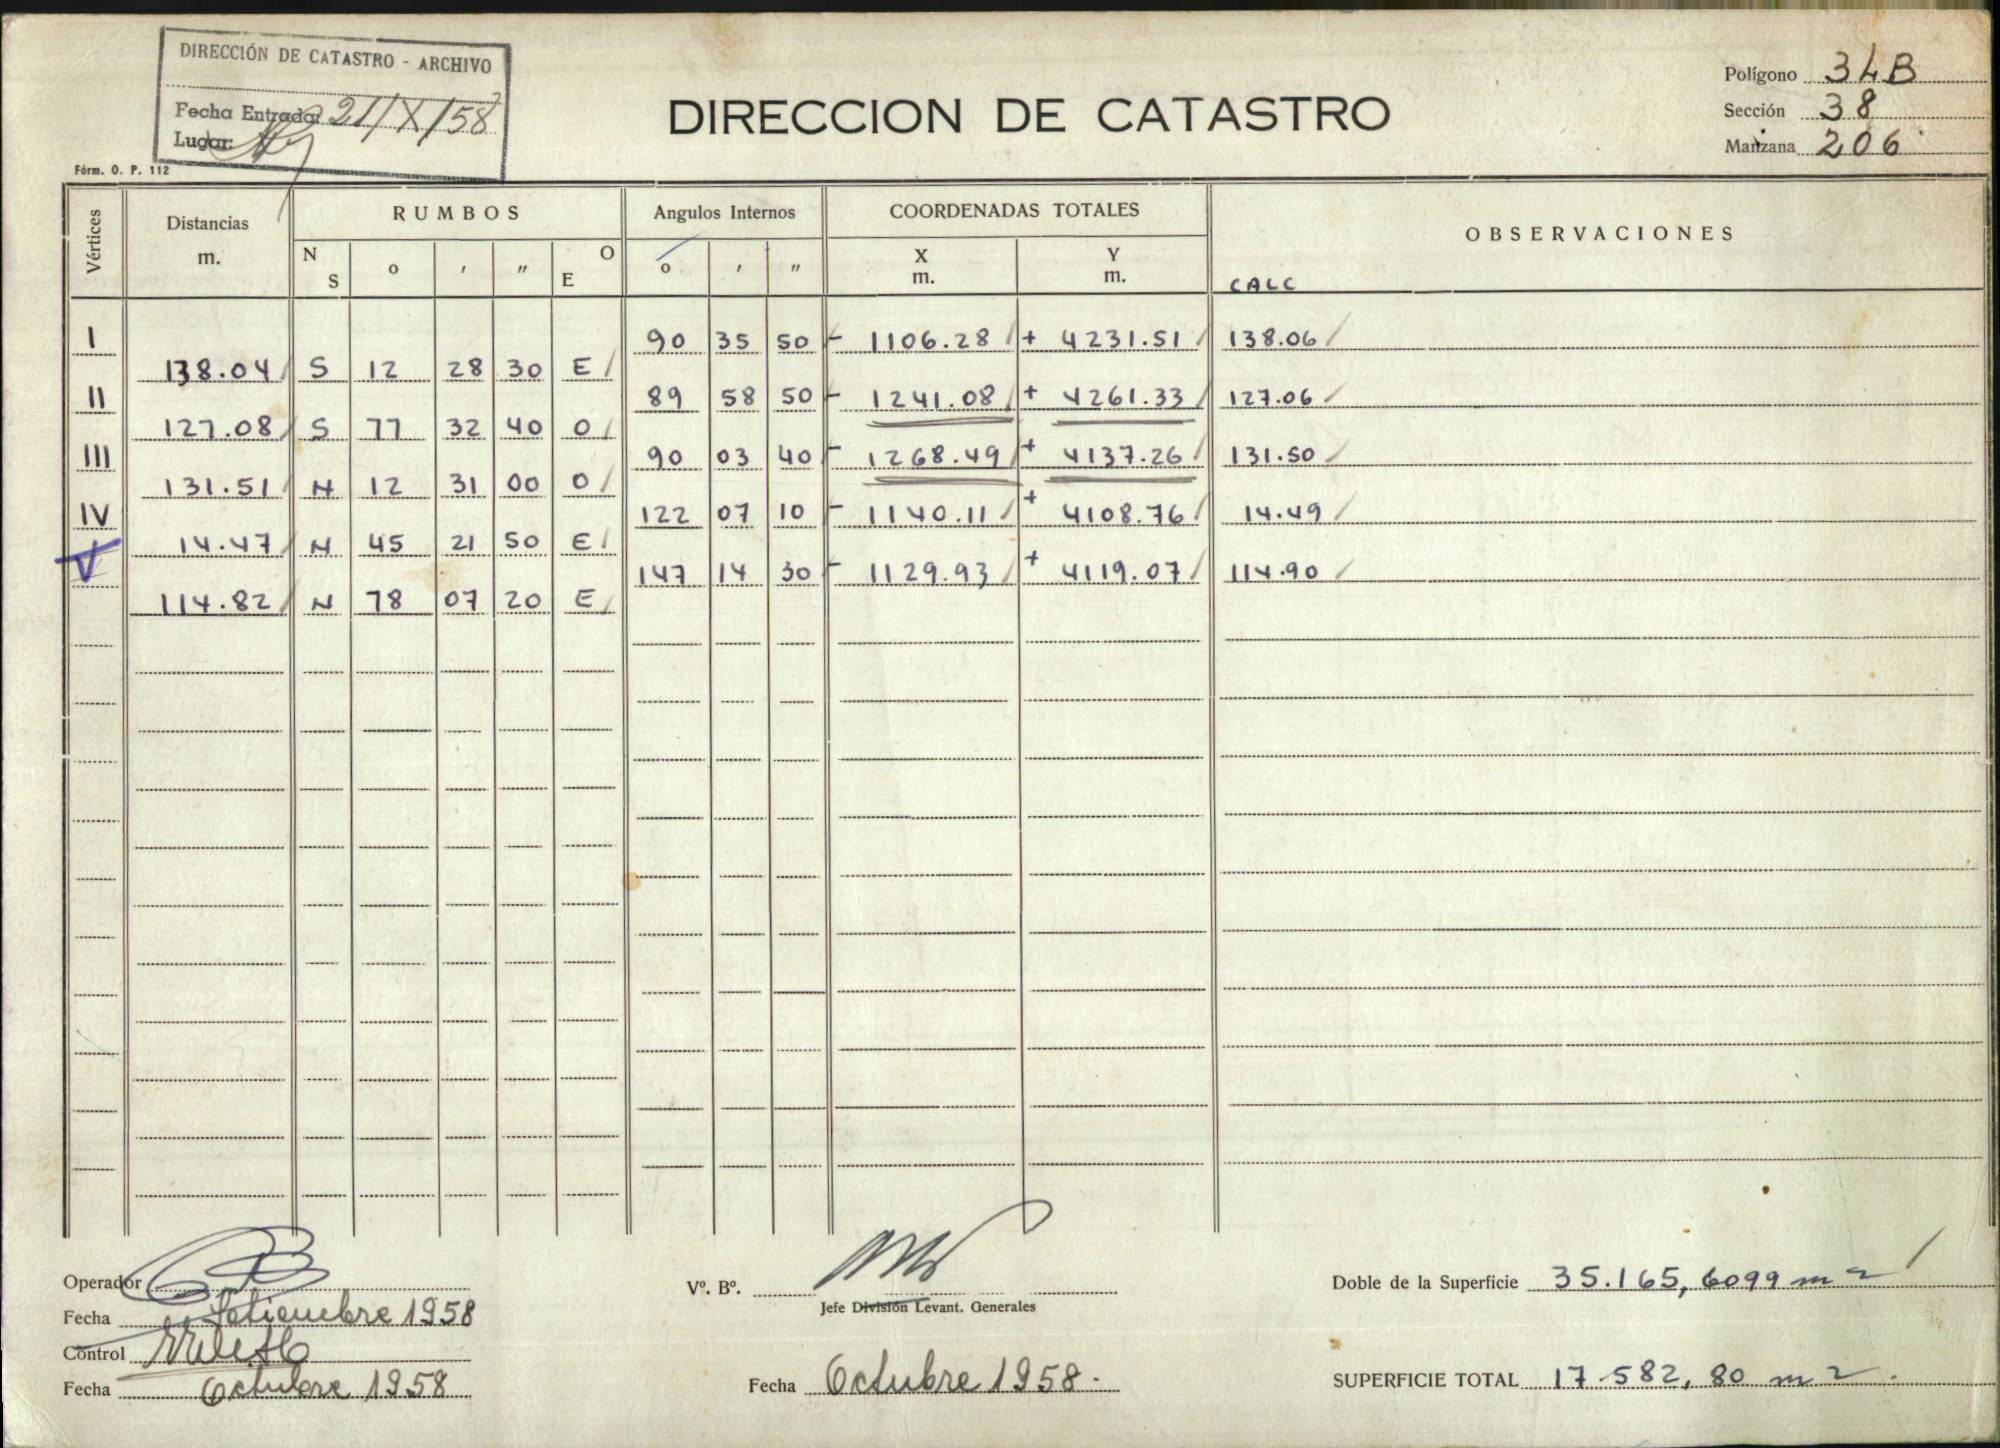 DIRECCIÓN DE CATASTRO - ARCHIVO
Fecha Entrada: 21/X/58
Lugar:
Fórm. O. P. 112
DIRECCION DE CATASTRO
Polígono 34B
Sección 38
Manzana 206
Vértices Distancias m. RUMBOS Angulos Internos COORDENADAS TOTALES OBSERVACIONES
N S o ' " O E o ' " X m. Y m. CALC
I 90 35 50 - 1106.28 + 4231.51 138.06
138.04 S 12 28 30 E
II 89 58 50 - 1241.08 + 4261.33 127.06
127.08 S 77 32 40 O
III 90 03 40 - 1268.49 + 4137.26 131.50
131.51 N 12 31 00 O
IV 122 07 10 - 1140.11 + 4108.76 14.49
14.47 N 45 21 50 E
V 147 14 30 - 1129.93 + 4119.07 114.90
114.82 N 78 07 20 E
Operador
Fecha Setiembre 1958
Control
Fecha Octubre 1958
Vº. Bº.
Jefe División Levant. Generales
Fecha Octubre 1958.
Doble de la Superficie 35.165,6099 m2
SUPERFICIE TOTAL 17.582,80 m2.